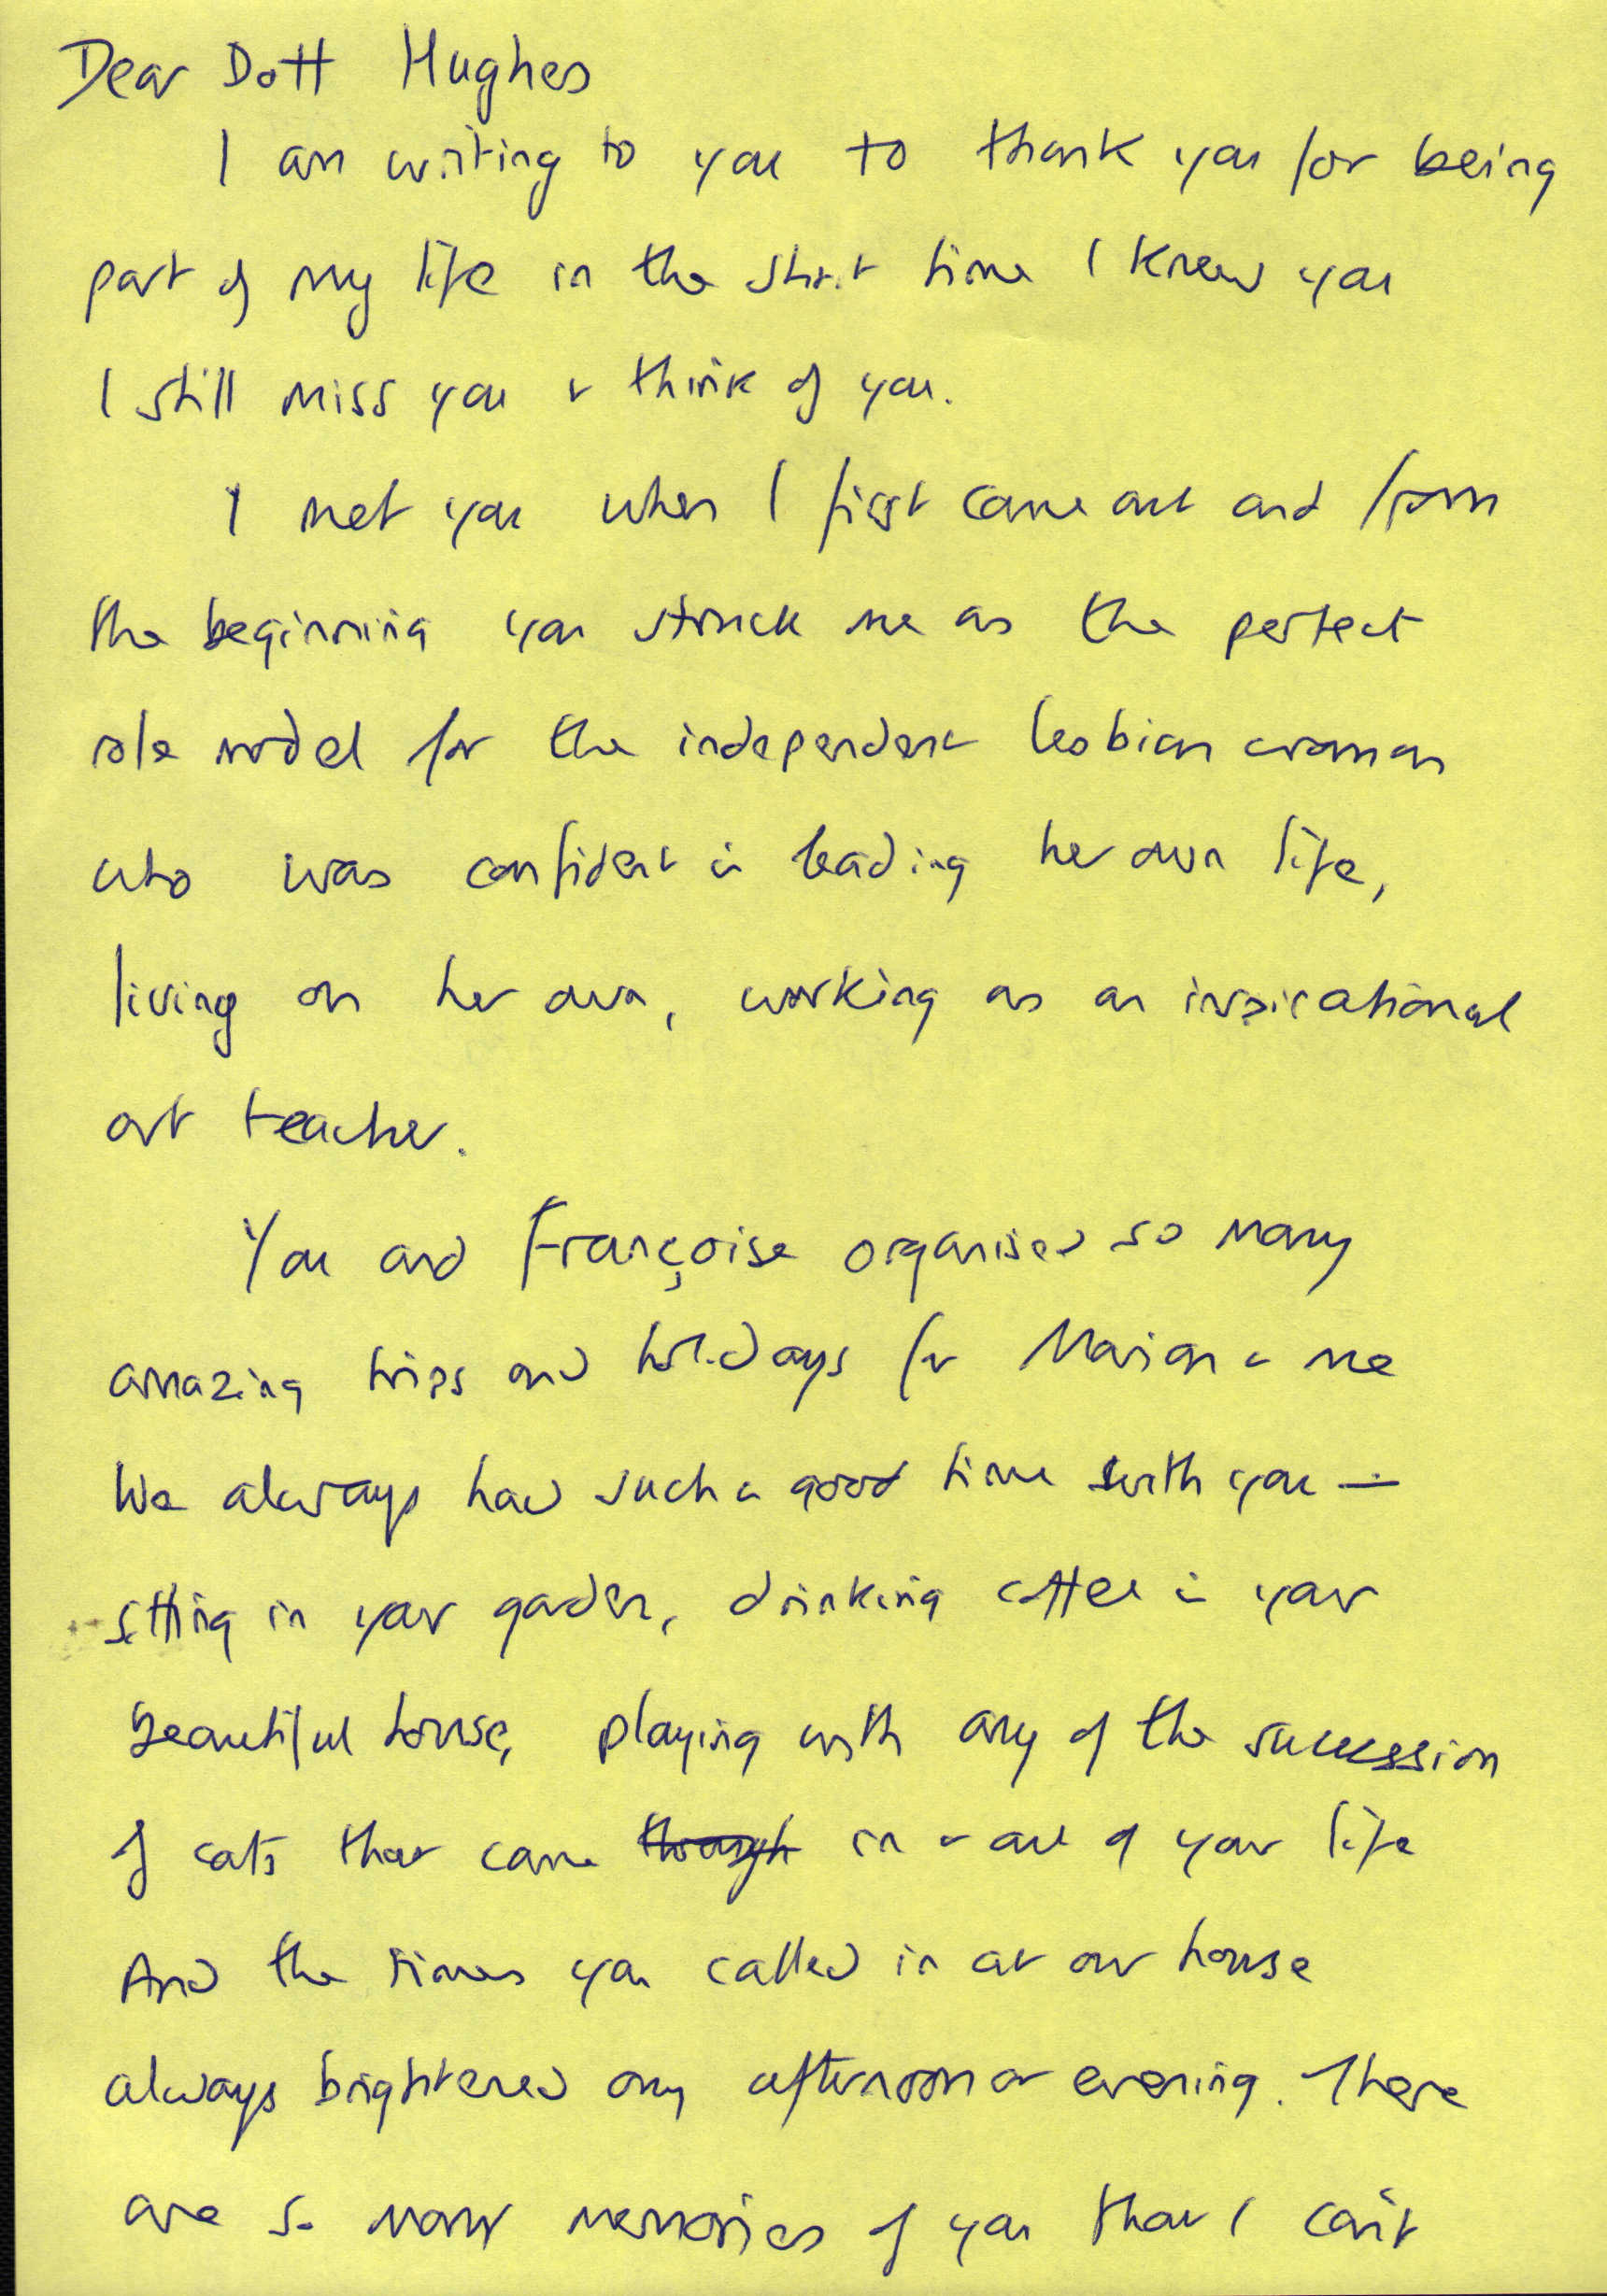 Dear Dott Hughes
I am writing to you to thank you for being
part of my life in the short time I knew you
I still miss you & think of you.
I met you when I first came out and from
the beginning you struck me as the perfect
role model for the independent lesbian woman
who was confident in leading her own life,
living on her own, working as an inspirational
art teacher.
You and Françoise organised so many
amazing trips and holidays for Marion & me
We always had such a good time with you —
sitting in your garden, drinking coffee in your
beautiful house, playing with any of the succession
of cats that came ~~through~~ in & out of your life
And the times you called in at our house
always brightened any afternoon or evening. There
are so many memories of you that I can't